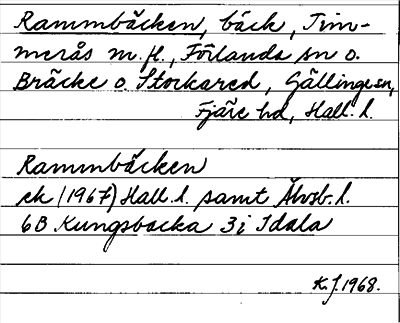 Rammbäcken, bäck, Tim-
merås m. fl., Förlanda sn o.
Bräcke o. Stockared, Gällinge sn,
Fjäre hd, Hall. l.
Rammbäcken
ek (1967) Hall. l. samt Älvsb. l.
6B Kungsbacka 3i Idala
K.J. 1968.